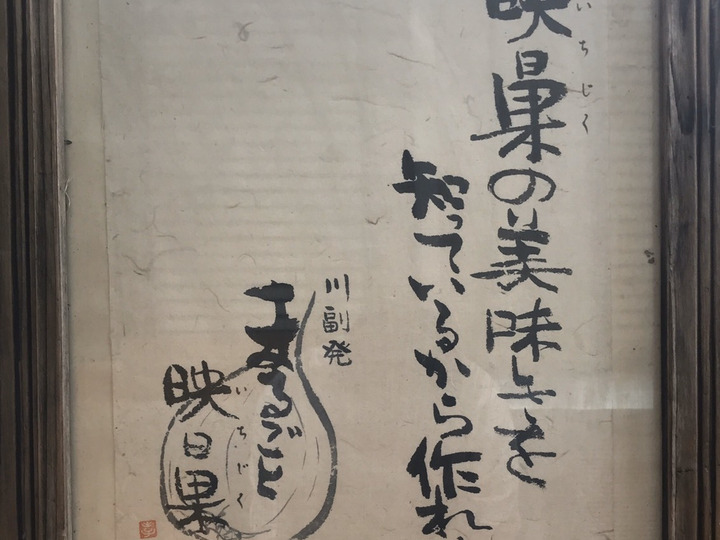 いちじく
映日果の美味しさを
知っているから作れ
川副発
まるごと
いちじく
映日果